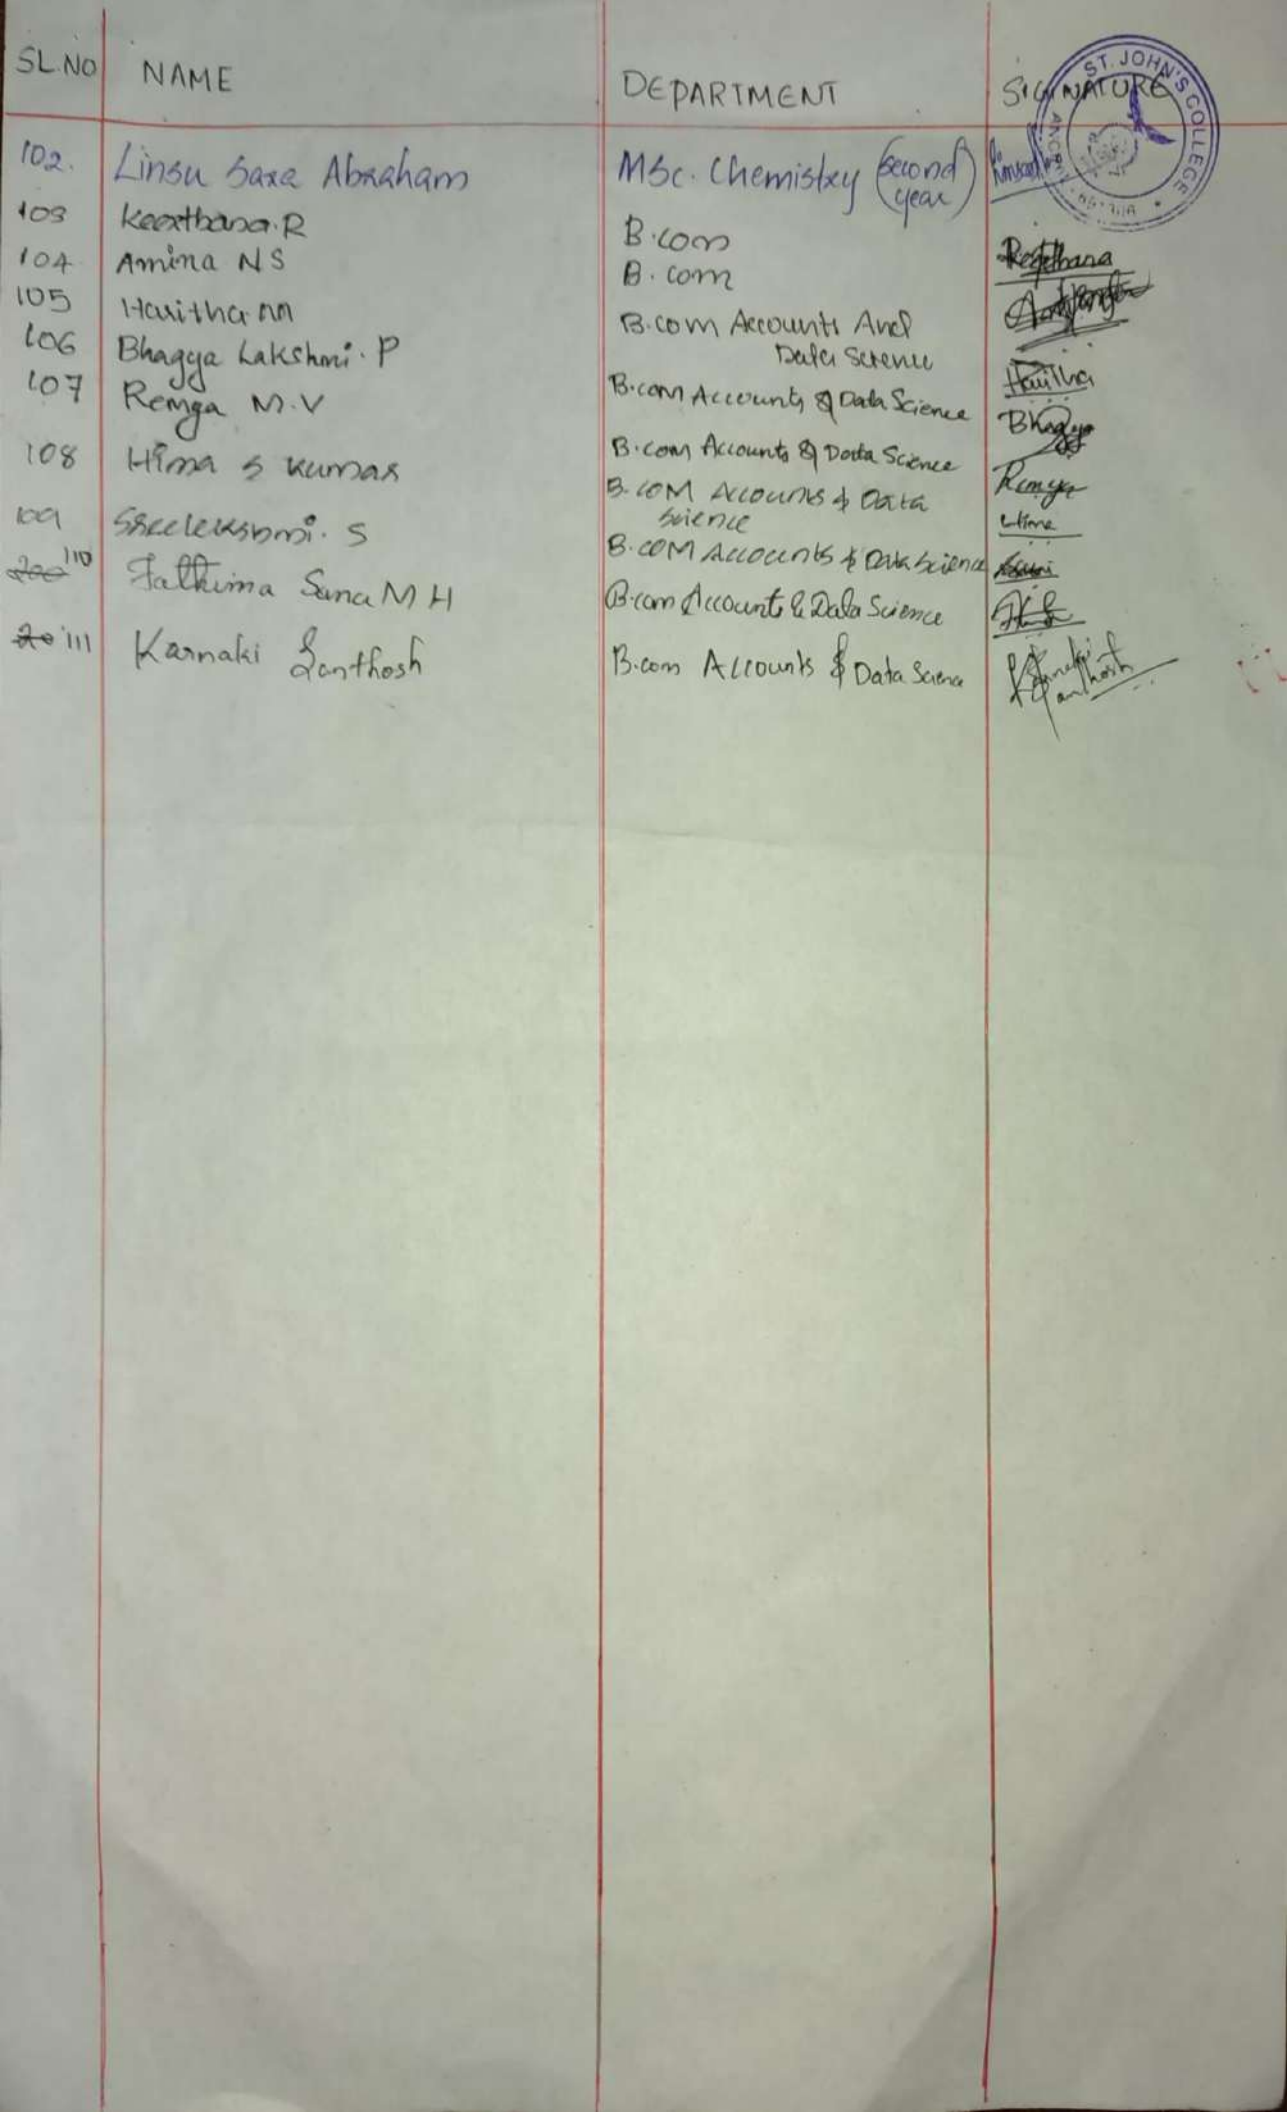 SL.NO NAME DEPARTMENT SIGNATURE
ST. JOHN'S COLLEGE
102. Linsu Sara Abraham MSc. Chemistry (Second year)
103 Keerthana.R B.com
104 Amina NS B.com
105 Haritha B.com Accounts And Data Science
106 Bhagya Lakshmi.P B.com Accounts & Data Science
107 Remya M.V B.com Accounts & Data Science
108 Hima S Kumar B.COM Accounts & Data Science
109 Sreelekshmi.S B.COM Accounts & Data Science
110 Fathima Sana M H B.com Accounts & Data Science
111 Karnaki Santhosh B.com Accounts & Data Science
Keerthana
Haritha
Bhagya
Remya
Hima
Karnaki Santhosh